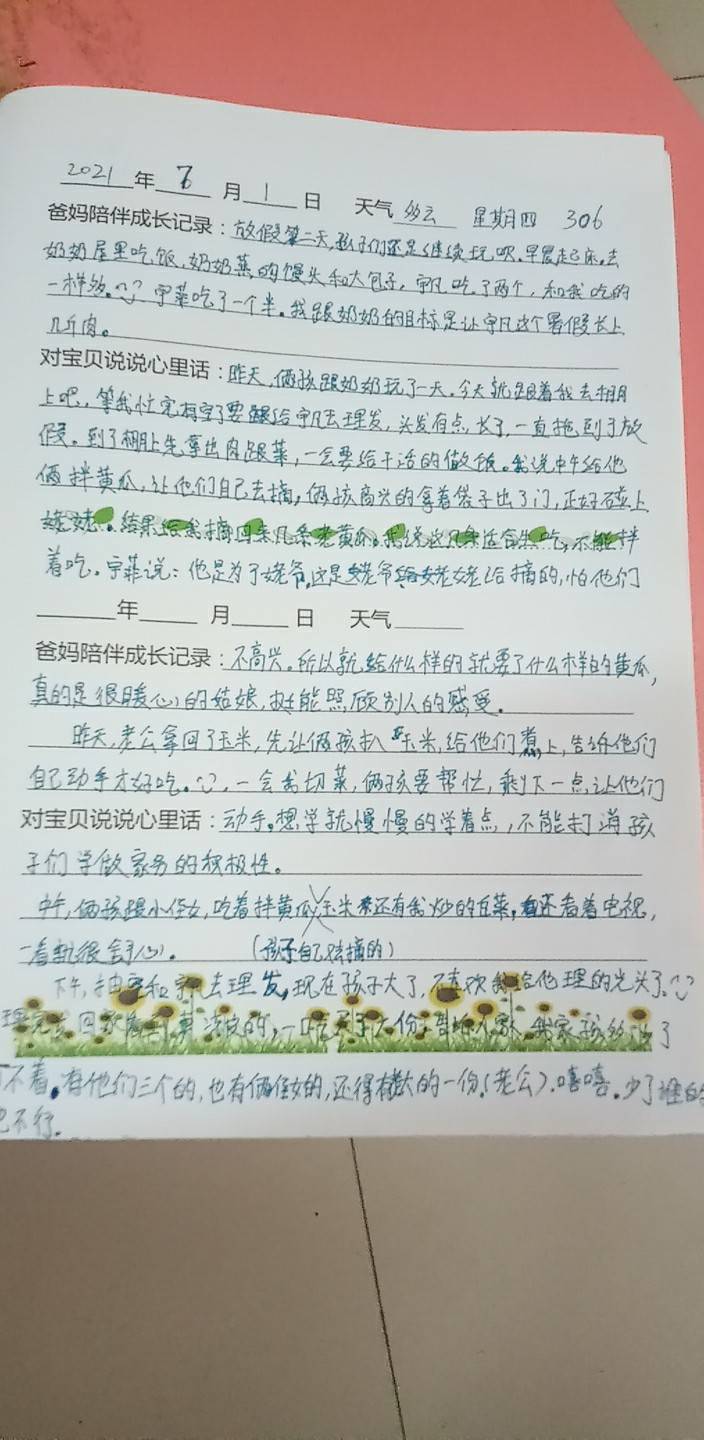 2021年 7月 1日 天气 多云 星期四 306
爸妈陪伴成长记录：放假第二天,孩子们还是继续玩呗.早晨起床.去
奶奶屋里吃饭,奶奶蒸的馒头和大包子,宇凡吃了两个,和我吃的
一样多. 宇菲吃了一个半。我跟奶奶的目标是让宇凡这个暑假长上
几斤肉。
对宝贝说说心里话：昨天,俩孩跟奶奶玩了一天.今天就跟着我去棚
上吧,等我忙完有空了要给宇凡去理发,头发有点长了,一直拖到了放
假。到了棚上先拿出肉跟菜,一会要给干活的做饭。我说中午给他
俩拌黄瓜,让他们自己去摘,俩孩高兴的拿着袋子出了门,正好碰上
姥姥。结果给我摘回来几条老黄瓜。我说这几条适合生吃,不能拌
着吃。宇菲说：他是为了姥爷,这是姥爷给姥姥给摘的,怕他们
年 月 日 天气
爸妈陪伴成长记录：不高兴。所以就给什么样的就要了什么样的黄瓜,
真的是很暖心的姑娘,挺能照顾别人的感受。
昨天,老公拿回了玉米,先让俩孩扒玉米,给他们煮上,告诉他们
自己动手才好吃。一会我切菜,俩孩要帮忙,剩下一点,让他们
对宝贝说说心里话：动手,想学就慢慢的学着点,不能打消孩
子们学做家务的积极性。
中午,俩孩跟小侄女,吃着拌黄瓜,玉米还有我炒的豆菜,还看着电视,
一看就很舒心。 (孩子自己摘的)
下午,抽空和宇凡去理发,现在孩子大了,不喜欢我给他理的光头了.
理完发,回家 凉皮的,一口气买了六份, 我家孩多 了
不着。有他们三个的,也有俩侄女的,还得有大的一份.(老公).嘻嘻。少了谁的
也不行.